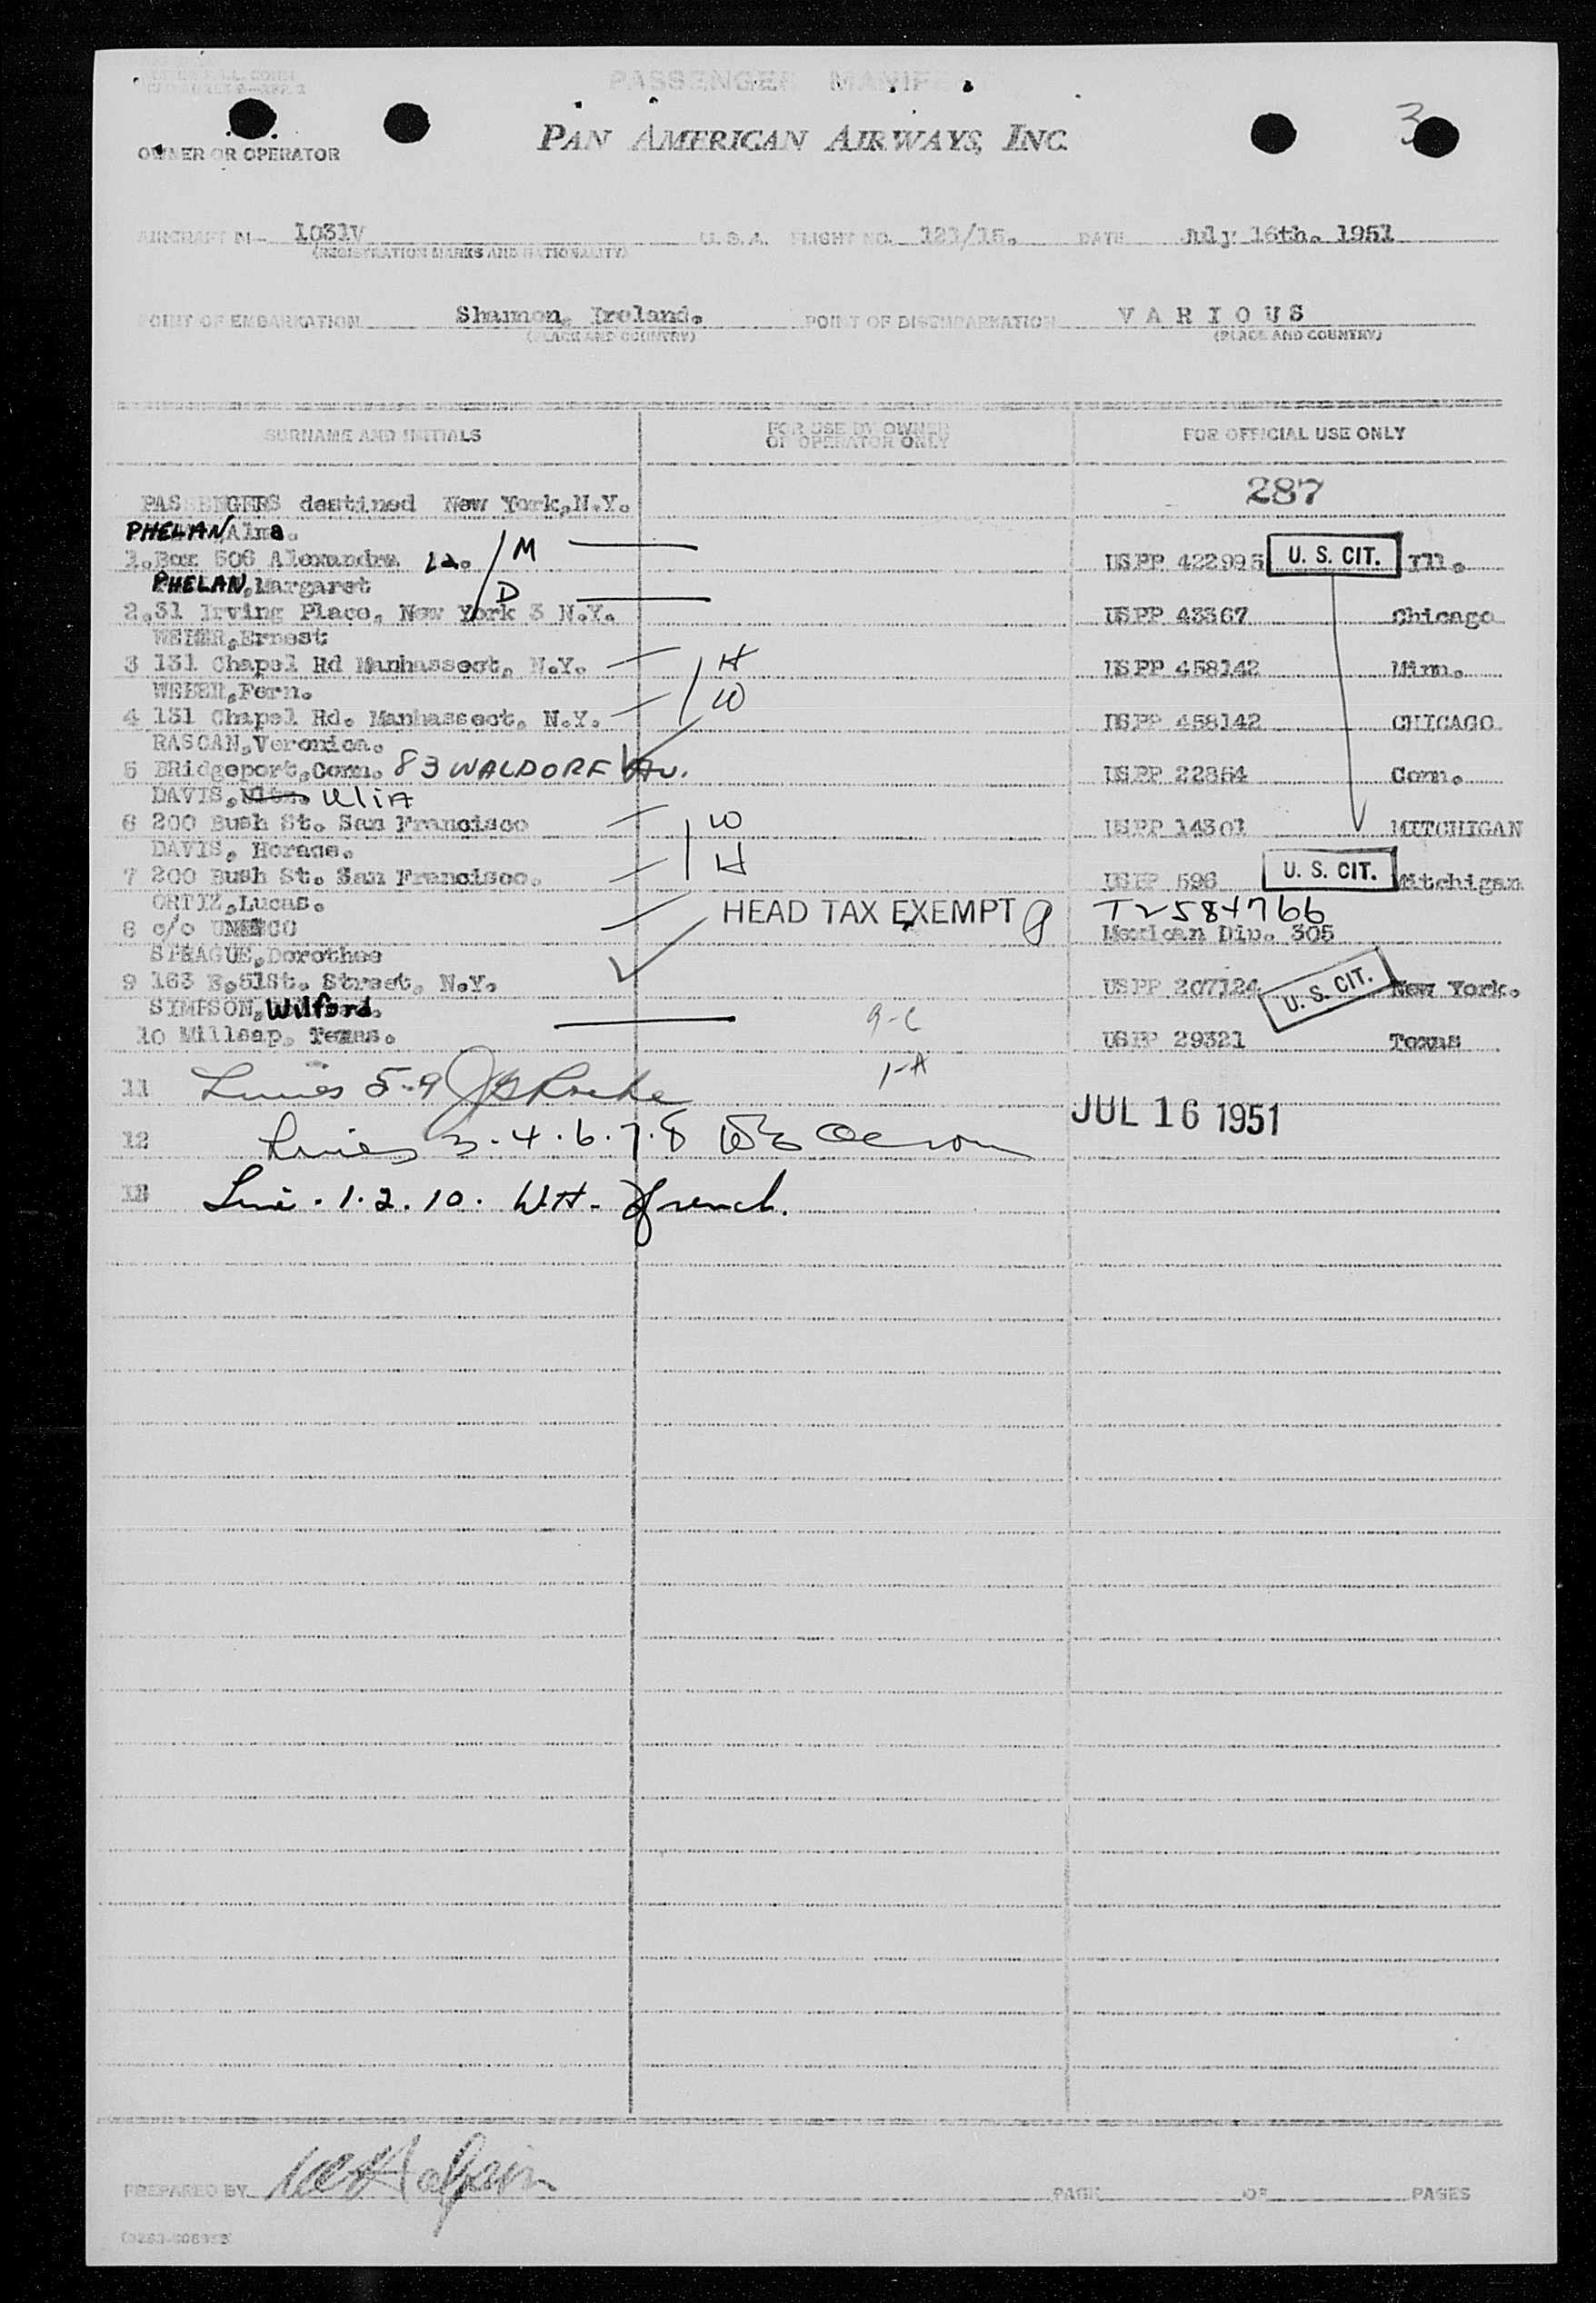 PASSENGER MANIFEST
3
PAN AMERICAN AIRWAYS, INC.
OWNER OR OPERATOR
AIRCRAFT N- 1031V U.S.A. FLIGHT NO. 121/15. DATE July 16th. 1951
(REGISTRATION MARKS AND NATIONALITY)
POINT OF EMBARKATION Shannon, Ireland. POINT OF DISEMBARKATION VARIOUS
(PLACE AND COUNTRY) (PLACE AND COUNTRY)
SURNAME AND INITIALS FOR USE BY OWNER OR OPERATOR ONLY FOR OFFICIAL USE ONLY
287
PASSENGERS destined New York,N.Y.
PHELAN, Alma.
1.Box 506 Alexandra La. M USPP 422995 U. S. CIT. Ill.
PHELAN,Margaret
2.31 Irving Place, New York 3 N.Y. D USPP 43367 Chicago
WEBER,Ernest
3 131 Chapel Rd Manhasset, N.Y. H USPP 458142 Minn.
WEBER,Fern.
4 131 Chapel Rd. Manhasset, N.Y. W USPP 458142 CHICAGO
RASCAN,Veronica.
5 BRidgeport,Conn. 83 WALDORF AV. USPP 22364 Conn.
DAVIS, UliA
6 200 Bush St. San Francisco W USPP 14301 MITCHIGAN
DAVIS, Horace.
7 200 Bush St. San Francisco. H USPP 596 U. S. CIT. Mitchigan
ORTIZ,Lucas. HEAD TAX EXEMPT T2584766
8 c/o UNESCO Mexican Dip. 305
SPRAGUE,Dorothee
9 163 E.51St. Street, N.Y. USPP 207124 U. S. CIT. New York.
SIMPSON,Wilford.
10 Millsap, Texas. 9-C USPP 29321 Texas
1-A
11 Lines 5-9
JUL 16 1951
12 Lines 3.4.6.7.8
13 Line.1.2.10. W.H. French.
PREPARED BY PAGE OF PAGES